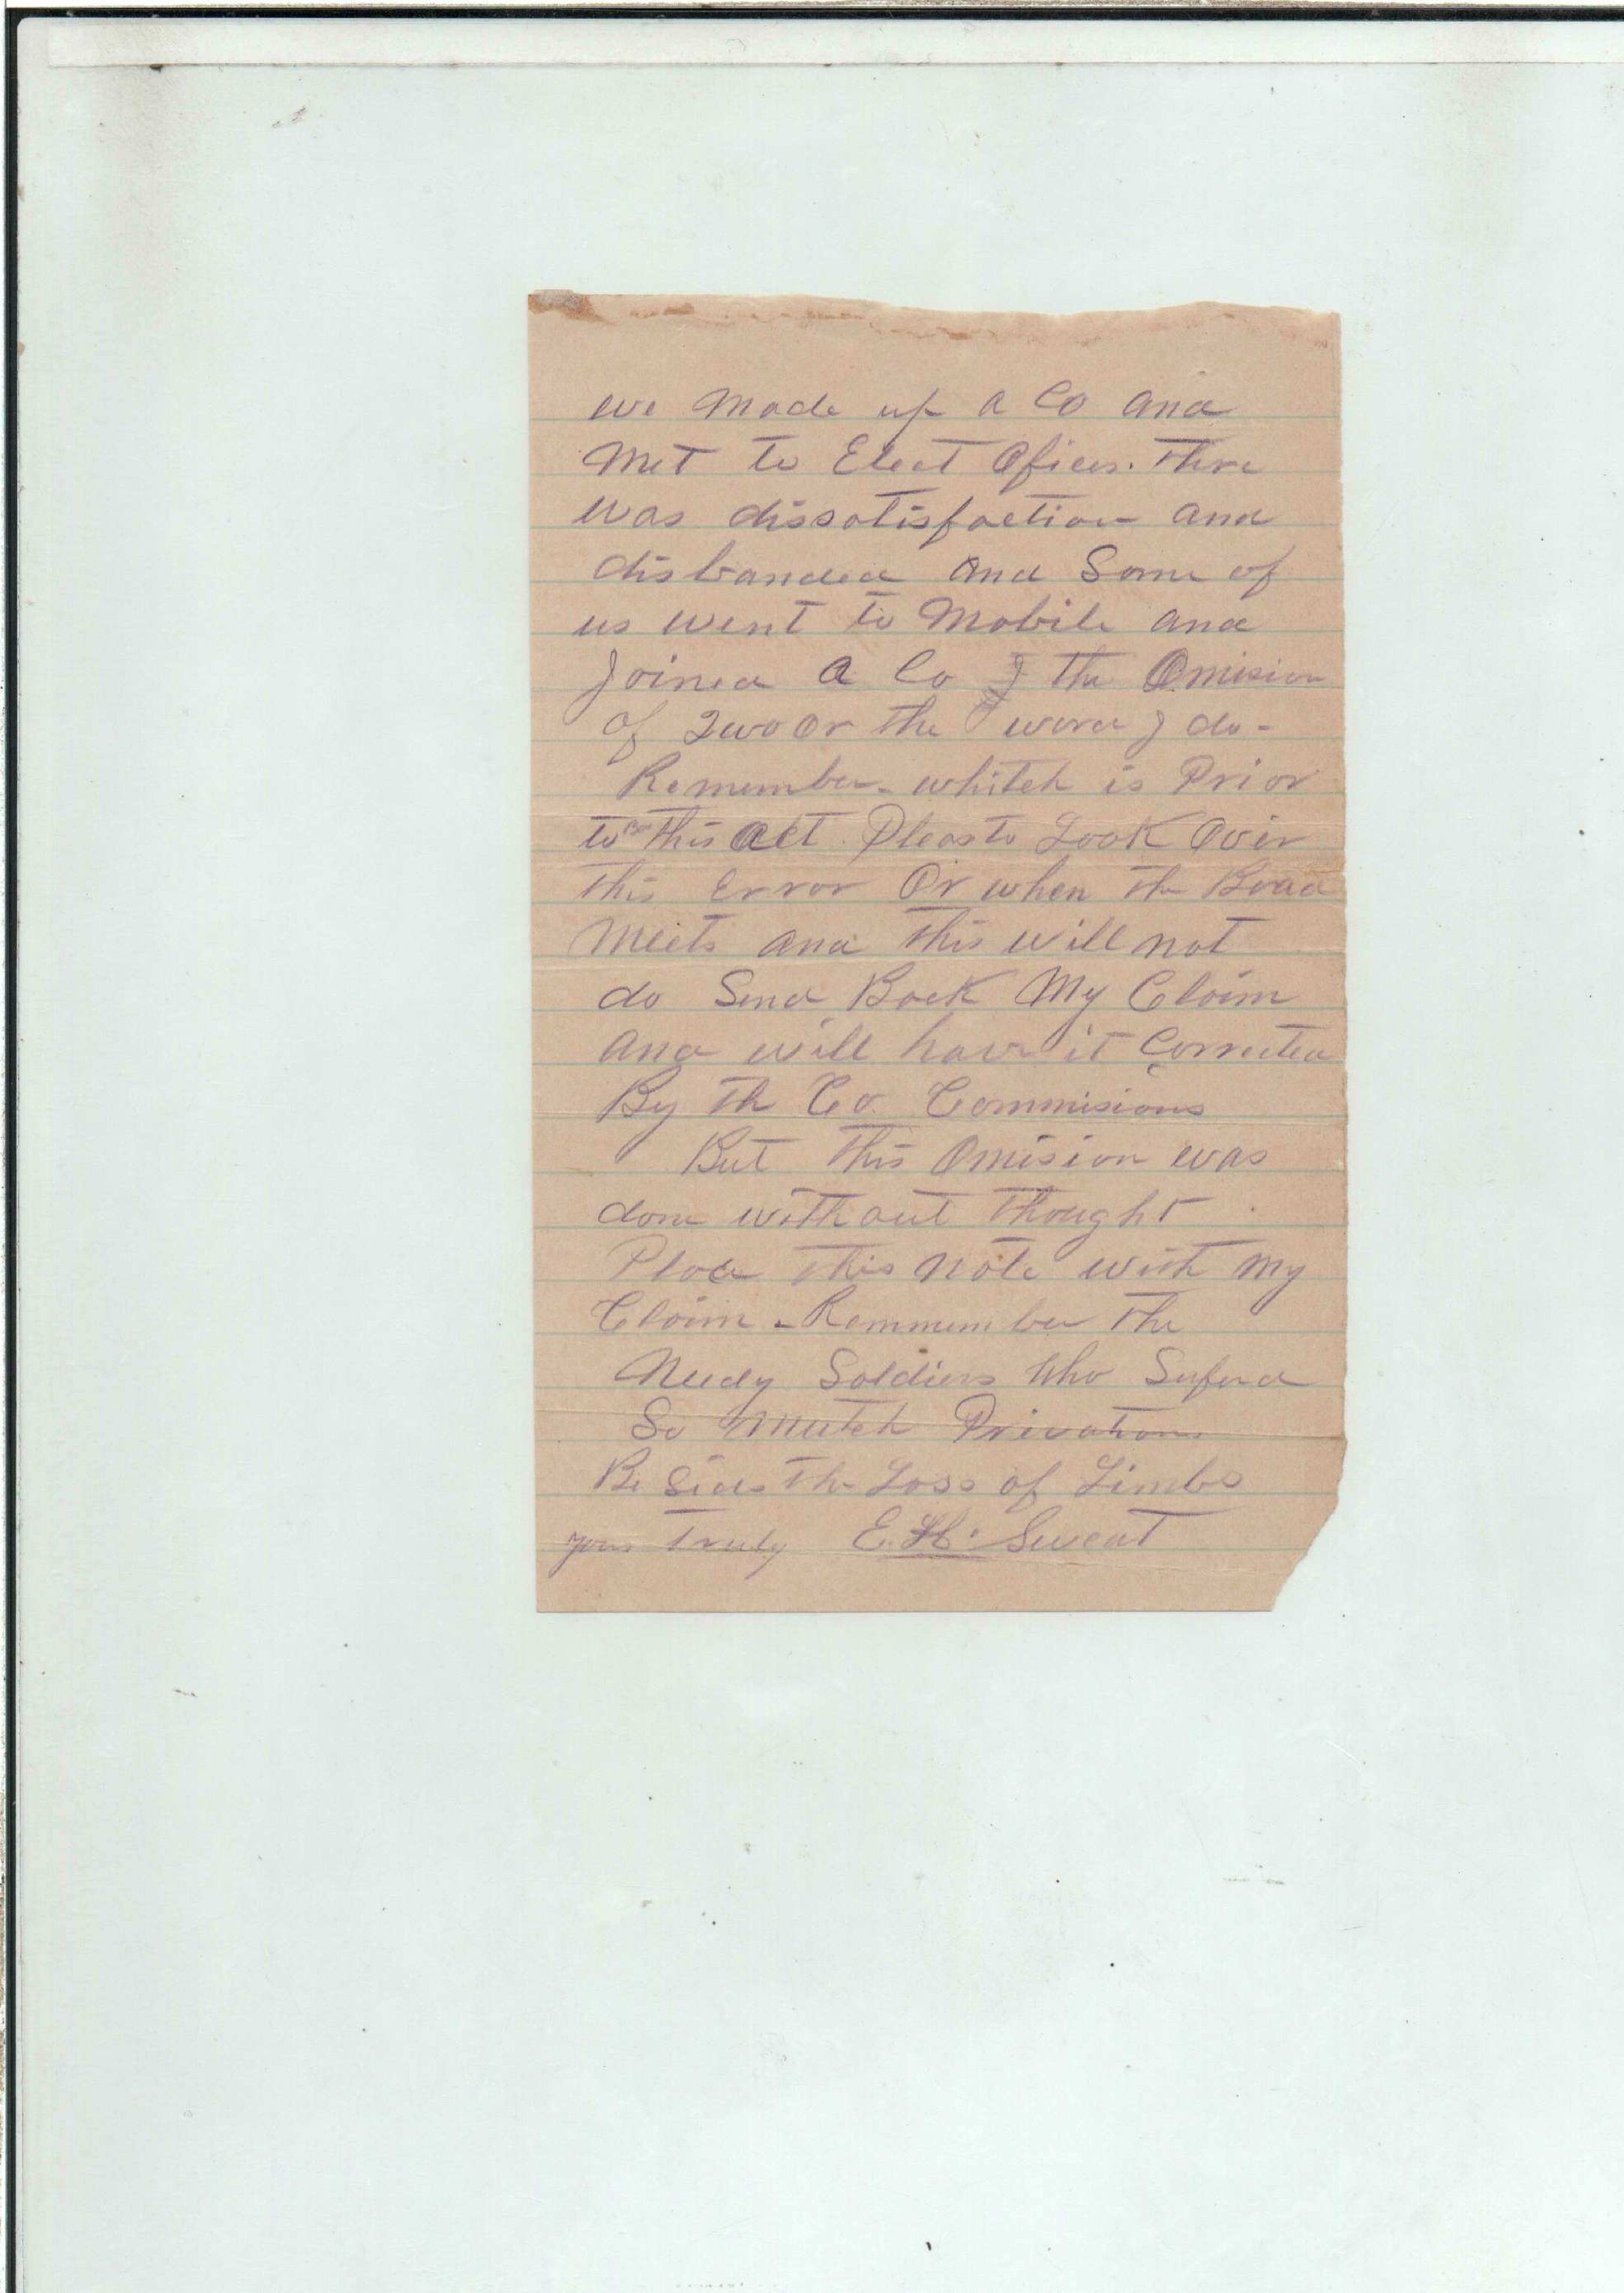 we Made up a Co and
Met to Elect Ofices. Thre
was dissatisfaction and
disbanded and Some of
us went to Mobile and
Joined A Co & the Omision
of Two or the word I do-
Remember. whitch is Prior
to this act. Pleas to Look Over
this Error Or when th Board
Meets and this will not
do Send Back My Claim
and will have it Corrected
By th Co. Commisions
But this Omision was
done without thought.
Place this note with My
Claim - Remmember the
Needy Soldiers who Suferd
So Mutch Privations
Be Sids th Loss of Limbs
yours Truly E. H. Sweat